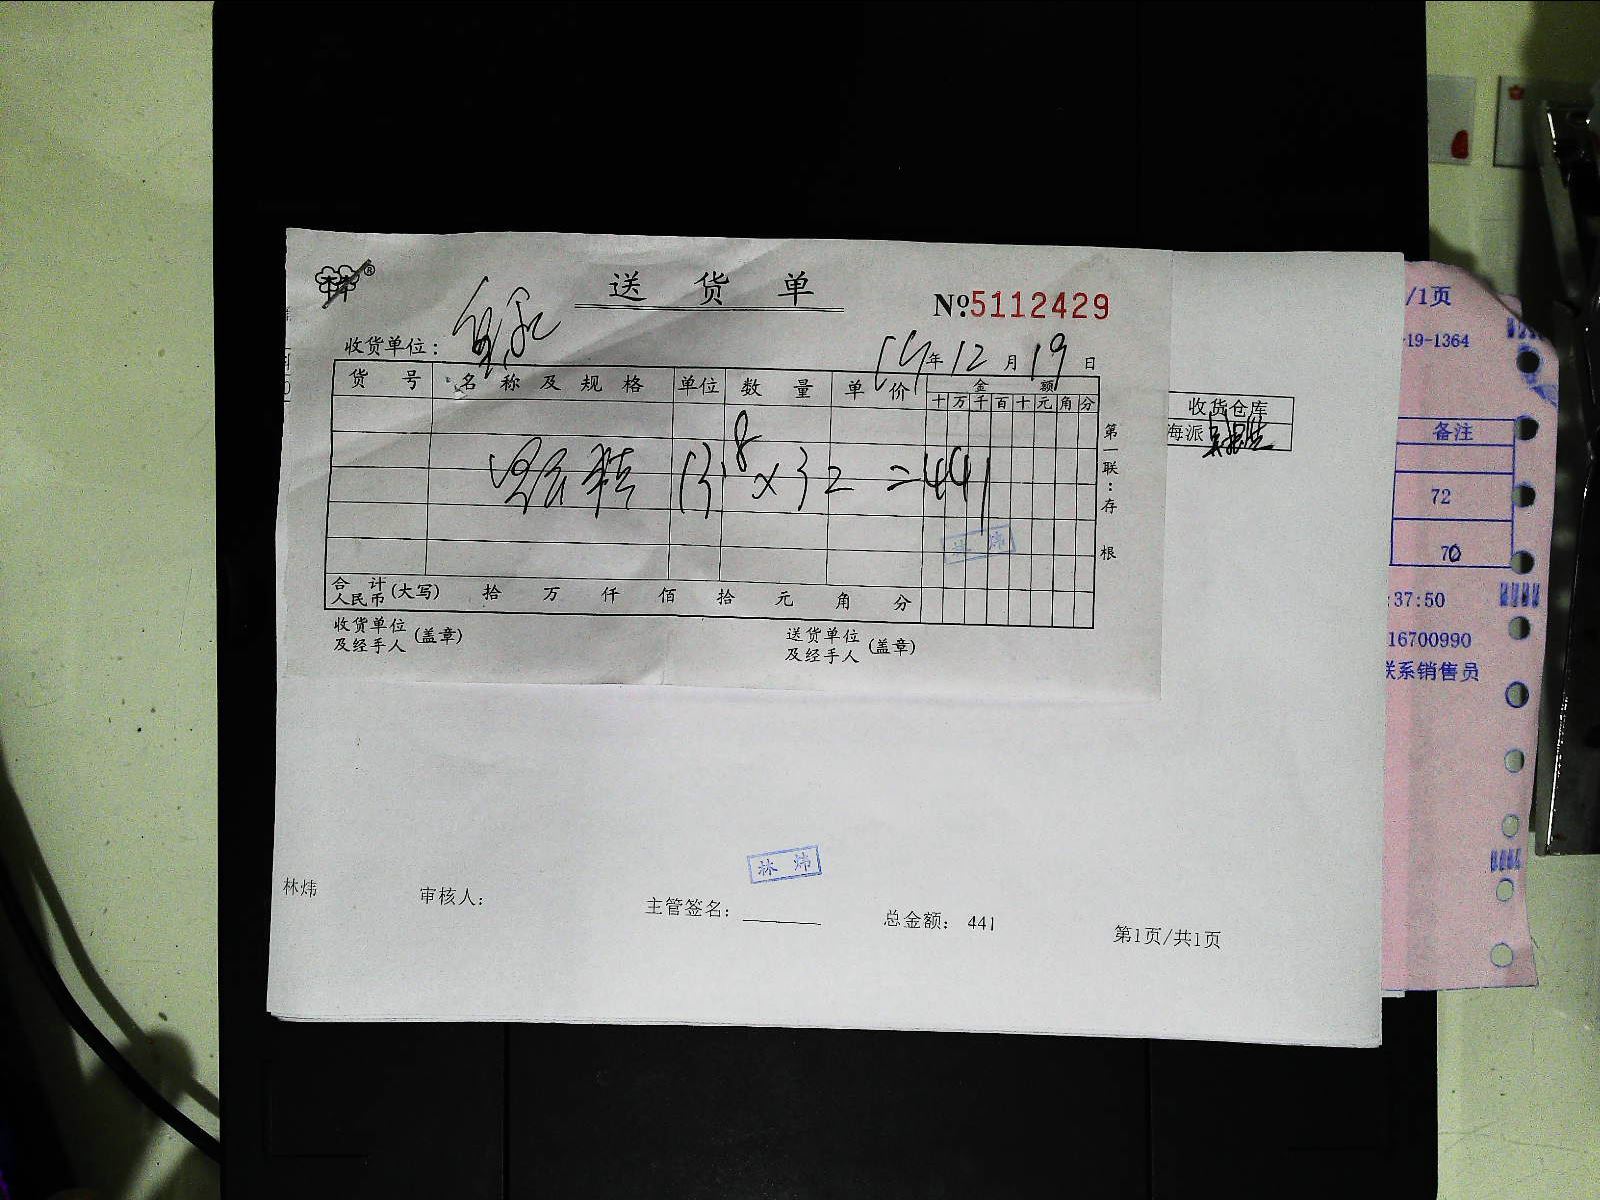 送货单
№5112429
收货单位：
年12月19日
货号 名称及规格 单位 数量 单价 金额
十万千百十元角分
13.8×32=441
第一联：存根
林炜
合计人民币(大写) 拾 万 仟 佰 拾 元 角 分
收货单位及经手人(盖章)
送货单位及经手人(盖章)
收货仓库
海派
/1页
-19-1364
备注
72
70
:37:50
16700990
联系销售员
林炜
林炜
审核人：
主管签名：
总金额： 441
第1页/共1页